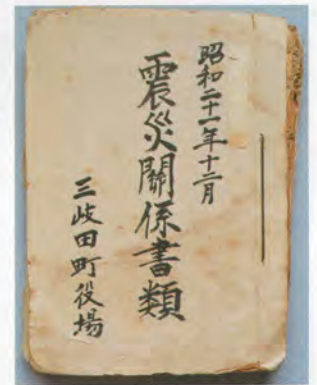 昭和二十一年十二月
震災關係書類
三岐田町役場